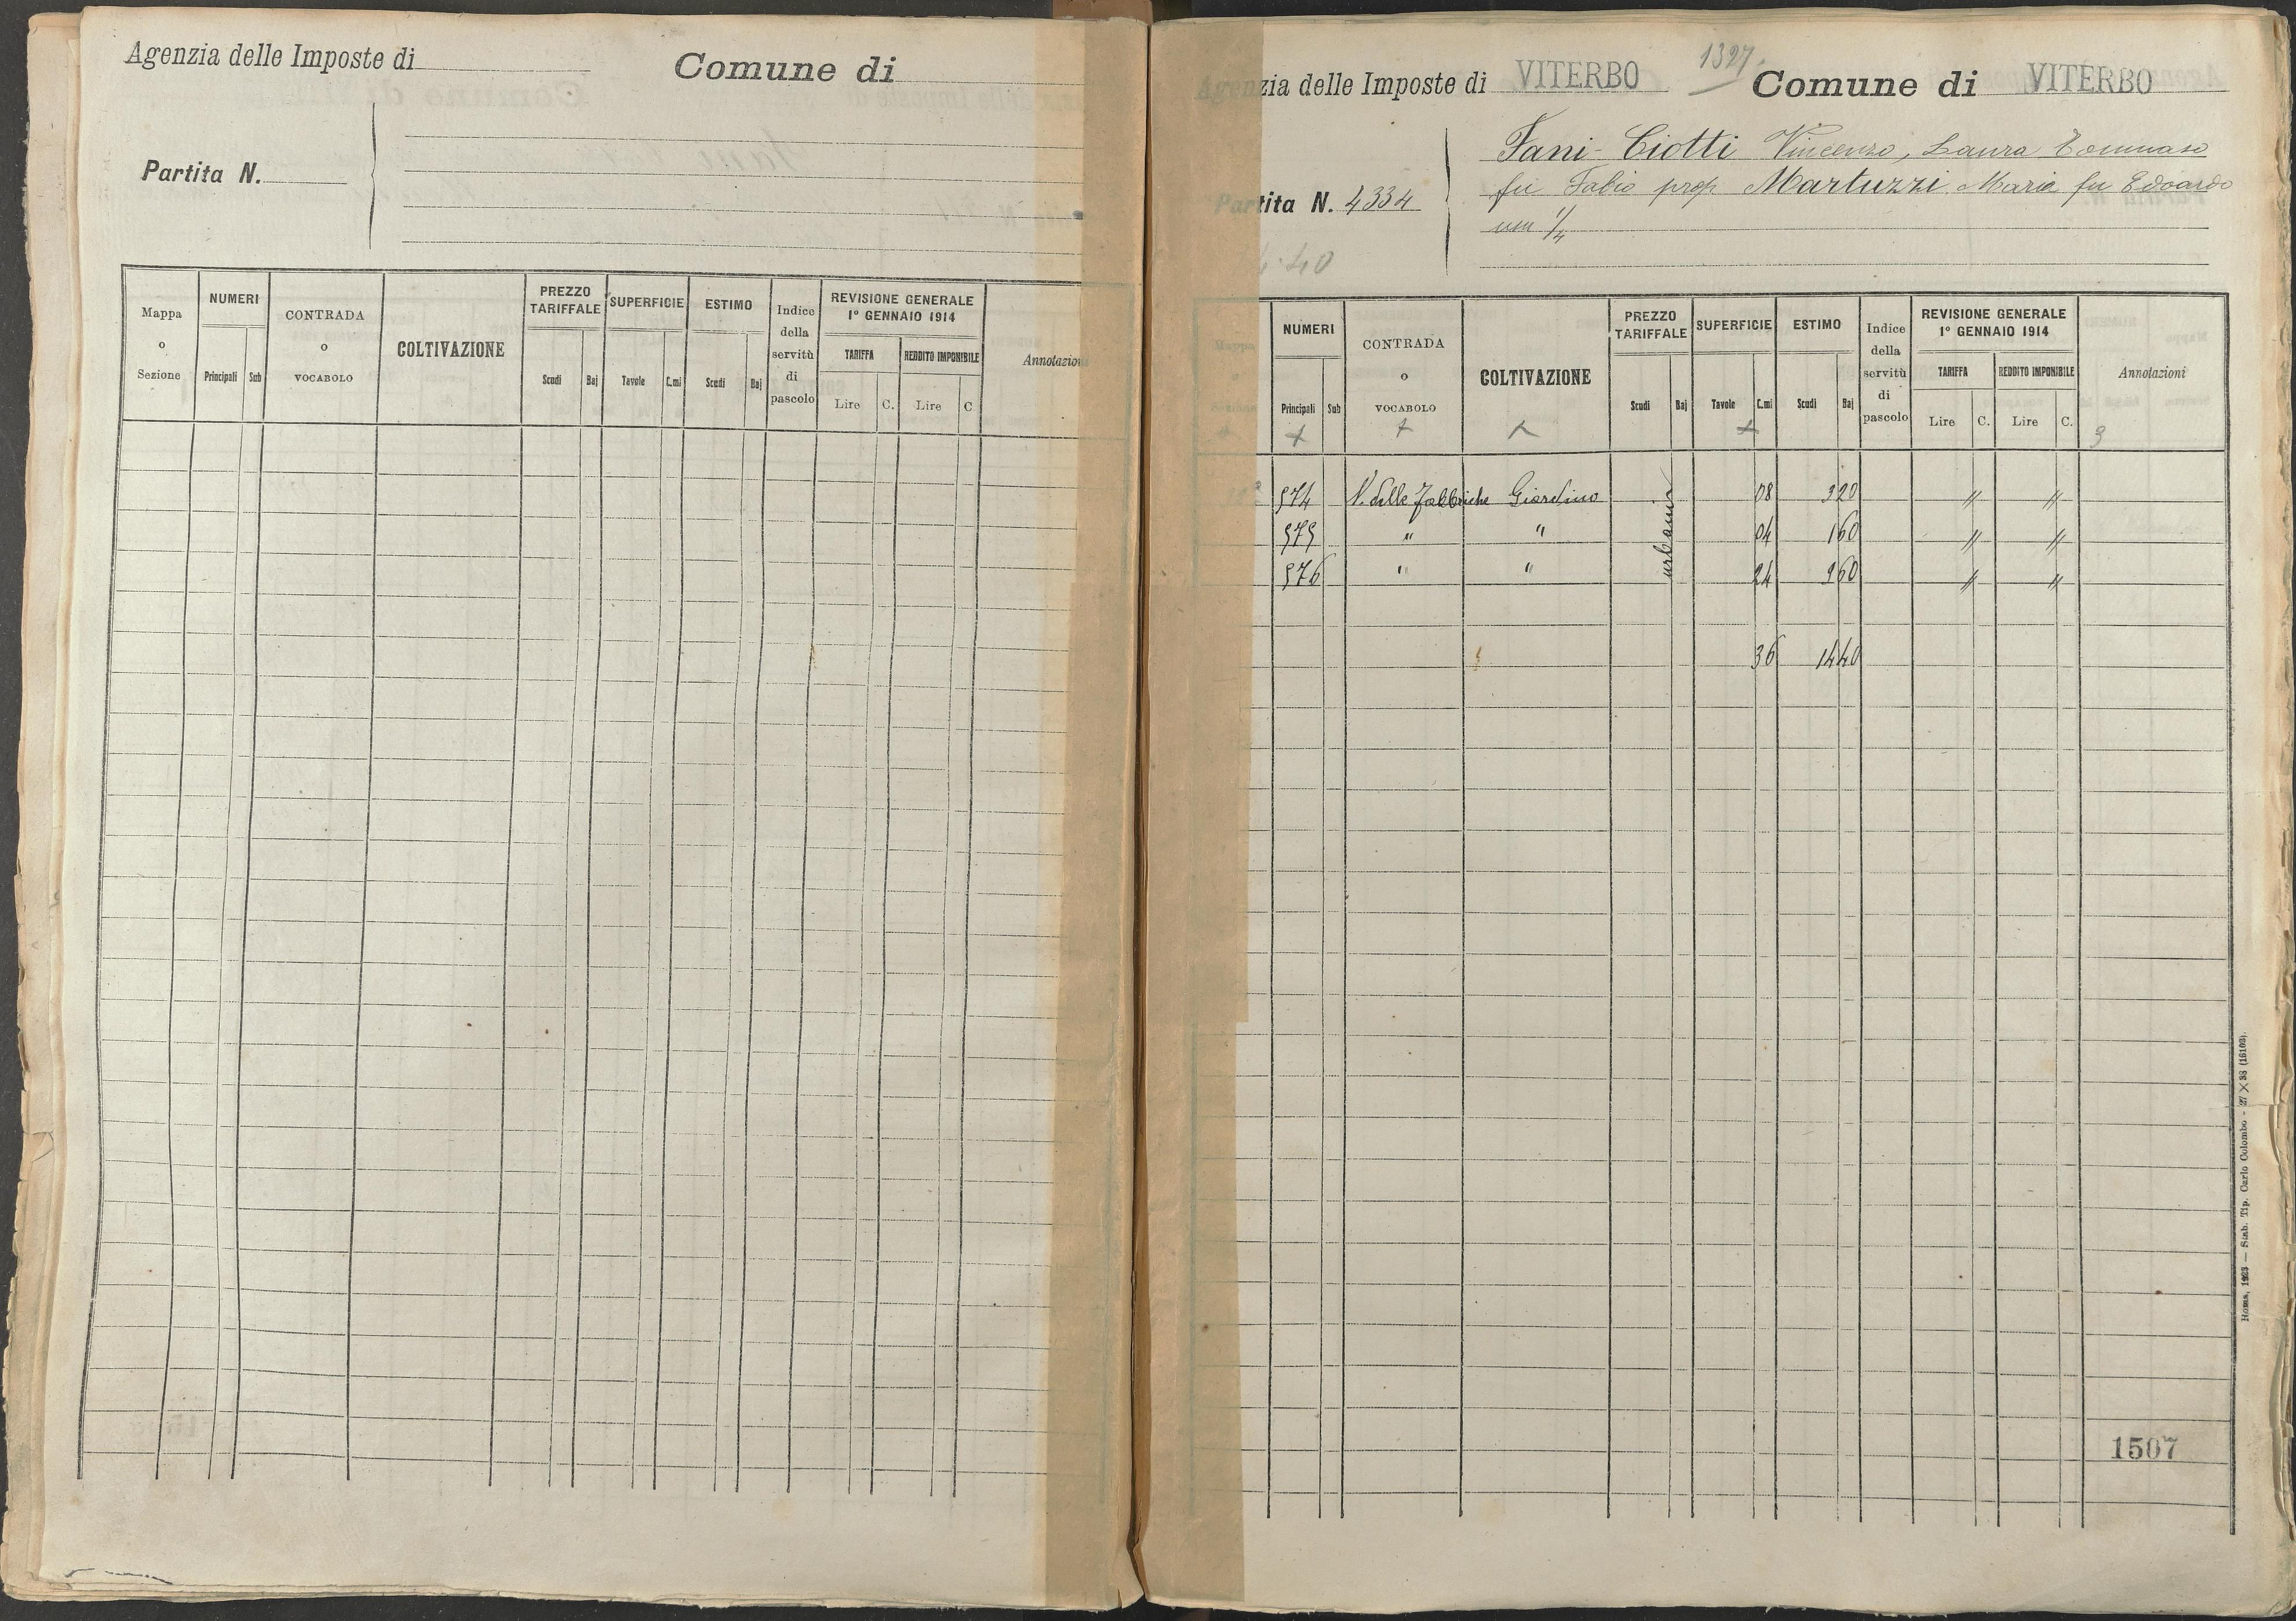 Agenzia delle Imposte di
Comune di
Partita N.
Mappa o Sezione
NUMERI
Principali Sub
CONTRADA o VOCABOLO
COLTIVAZIONE
PREZZO TARIFFALE
Scudi Baj
SUPERFICIE
Tavole C.mi
ESTIMO
Scudi Baj
Indice della servitù di pascolo
REVISIONE GENERALE
1° GENNAIO 1914
TARIFFA
Lire C.
REDDITO IMPONIBILE
Lire C
Annotazioni
1327.
Agenzia delle Imposte di VITERBO Comune di VITERBO
Fani-Ciotti Vincenzo, Laura Tommaso
Partita N. 4334
fu Fabio prop Martuzzi Maria fu Edoardo
1/4
40
Mappa o Sezione
NUMERI
Principali Sub
CONTRADA o VOCABOLO
COLTIVAZIONE
PREZZO TARIFFALE
Scudi Baj
SUPERFICIE
Tavole C.mi
ESTIMO
Scudi Baj
Indice della servitù di pascolo
REVISIONE GENERALE
1° GENNAIO 1914
TARIFFA
Lire C.
REDDITO IMPONIBILE
Lire C.
Annotazioni
3
574 V. delle Fabbriche Giardino urbani 08 320 " "
575 " " 04 160 " "
576 " " 24 960 " "
36 1440
1507
Roma, 1923 — Stab. Tip. Carlo Colombo - 27 × 38 (16108).